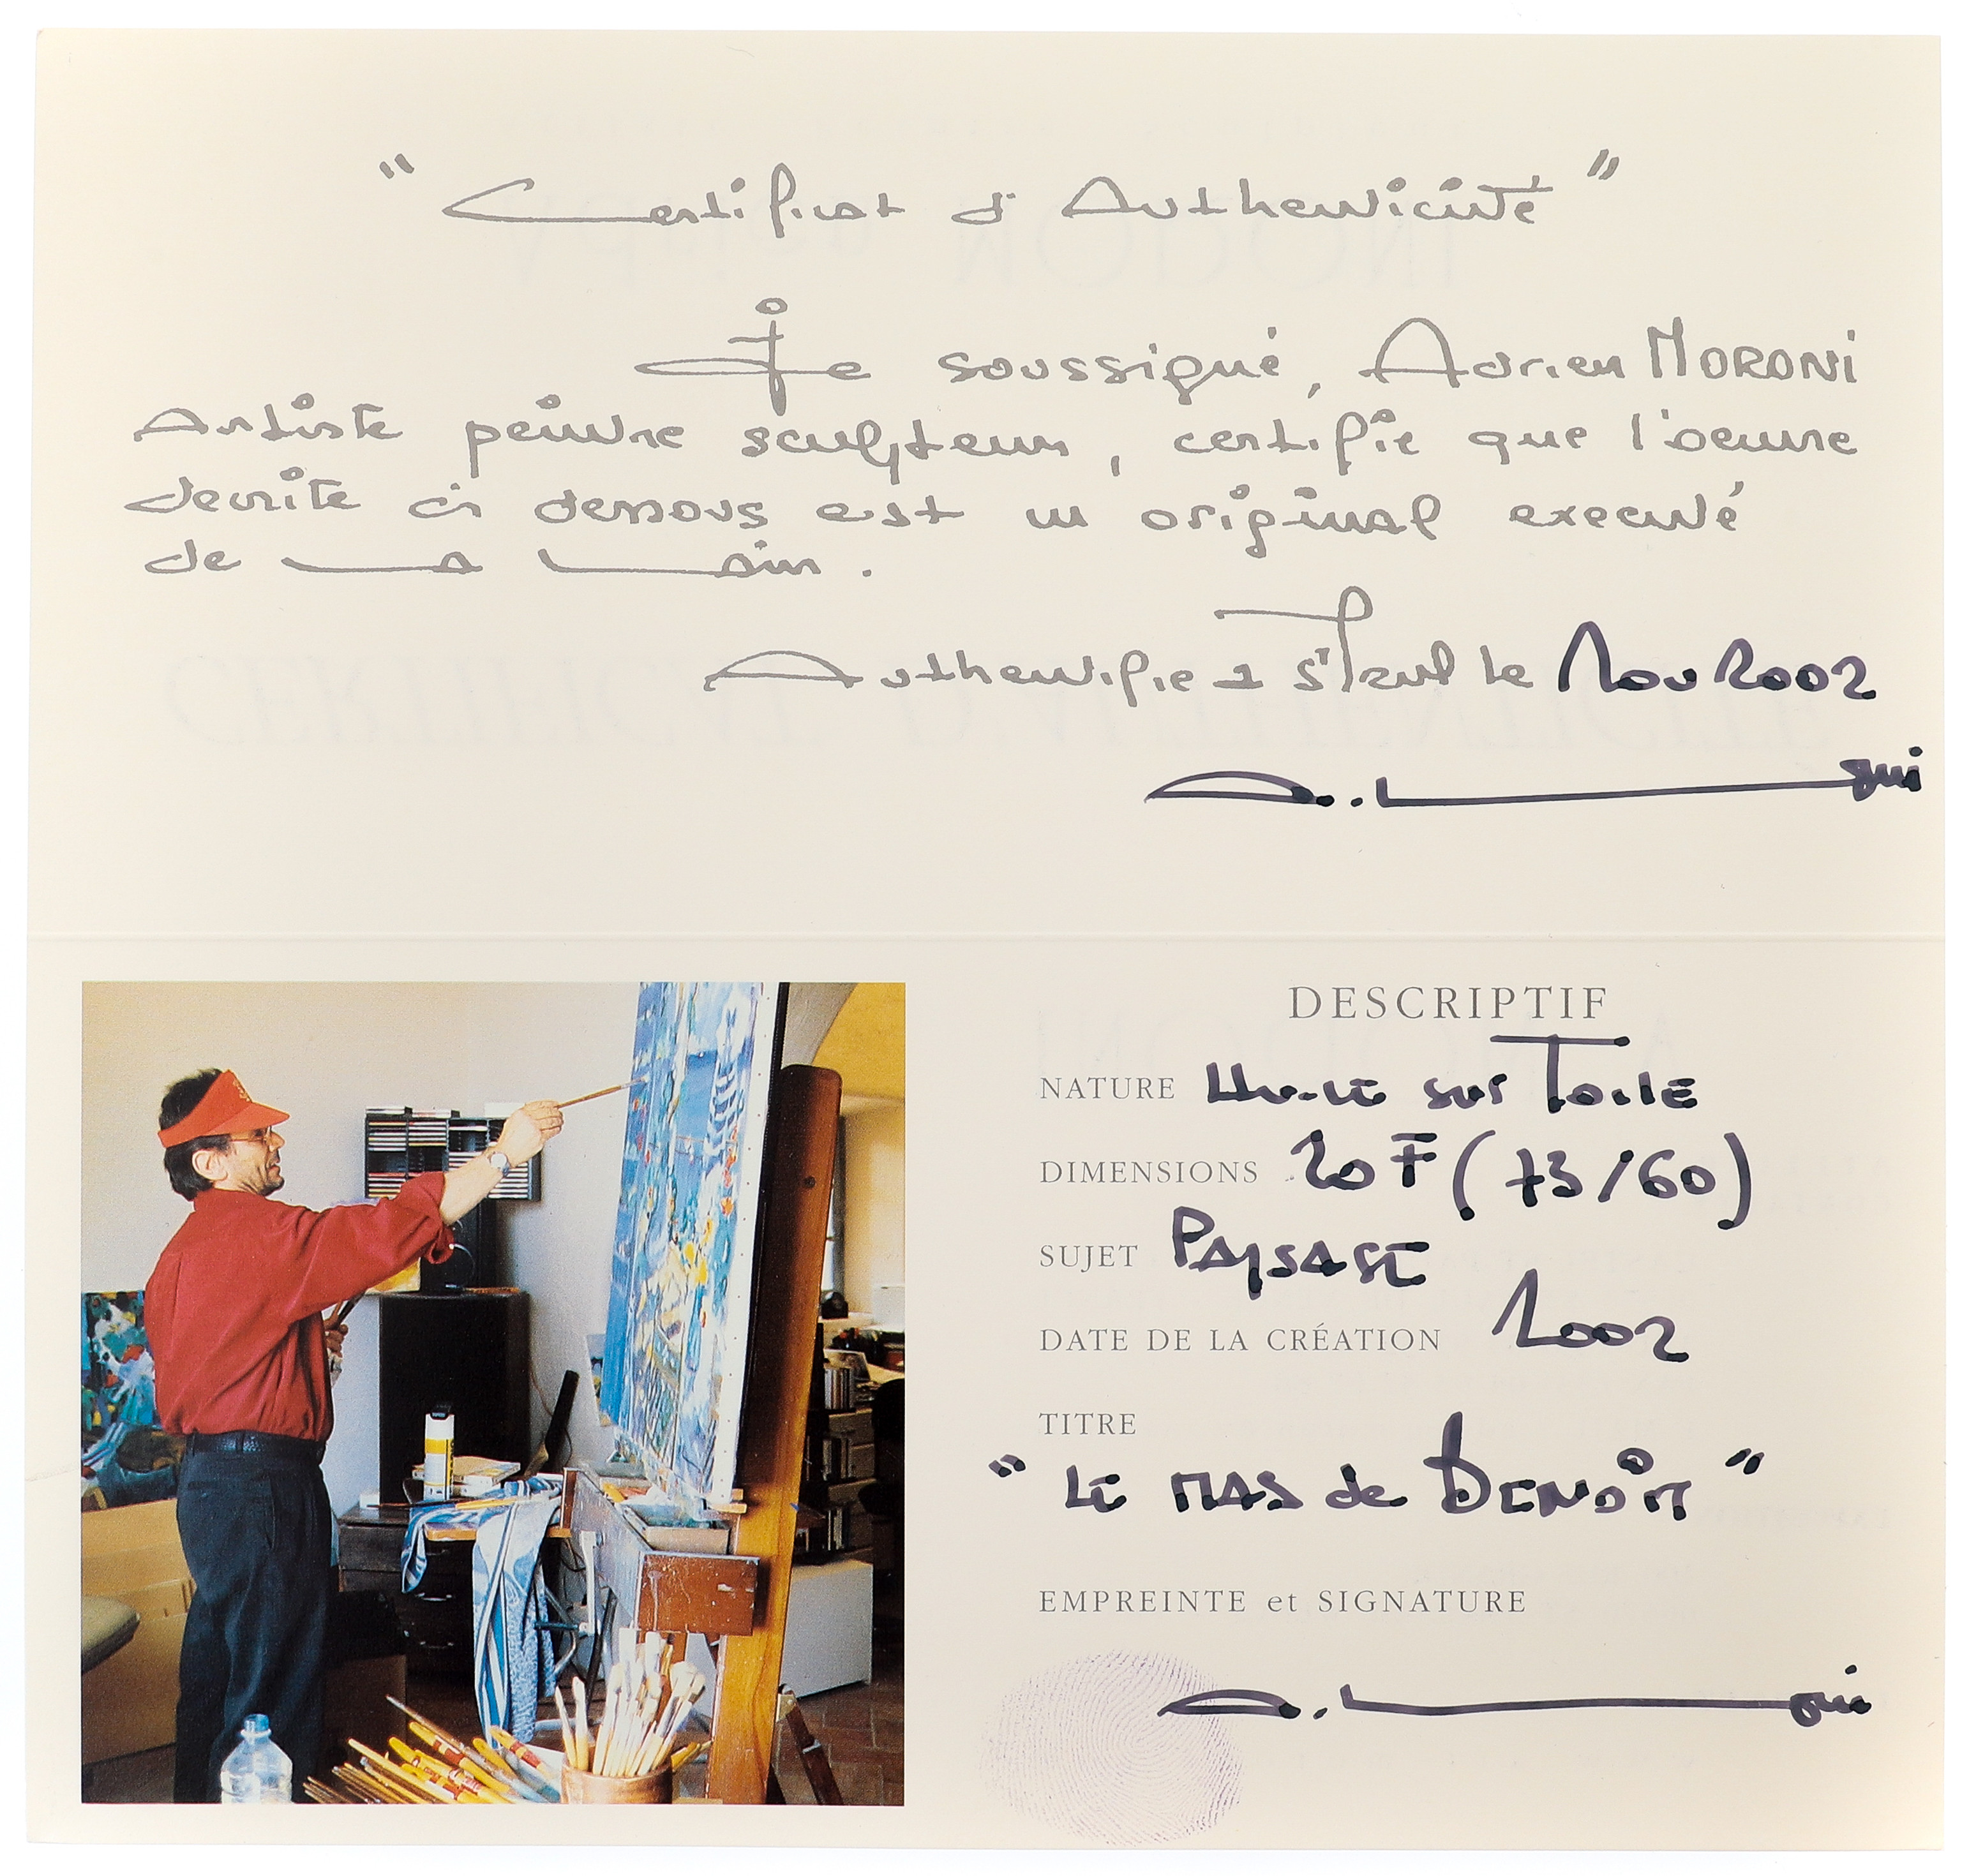 " Certificat d'Authenticité "
Je soussigné, Adrien MORONI
Artiste peintre sculpteur, certifie que l'oeuvre
décrite ci dessous est un original executé
de ma main.
Authentifié à St Paul le Nov 2002
A. Moroni
DESCRIPTIF
NATURE Huile sur Toile
DIMENSIONS 20 F (73/60)
SUJET PAYSAGE
DATE DE LA CRÉATION 2002
TITRE
" LE MAS de BENOIT "
EMPREINTE et SIGNATURE
A. Moroni